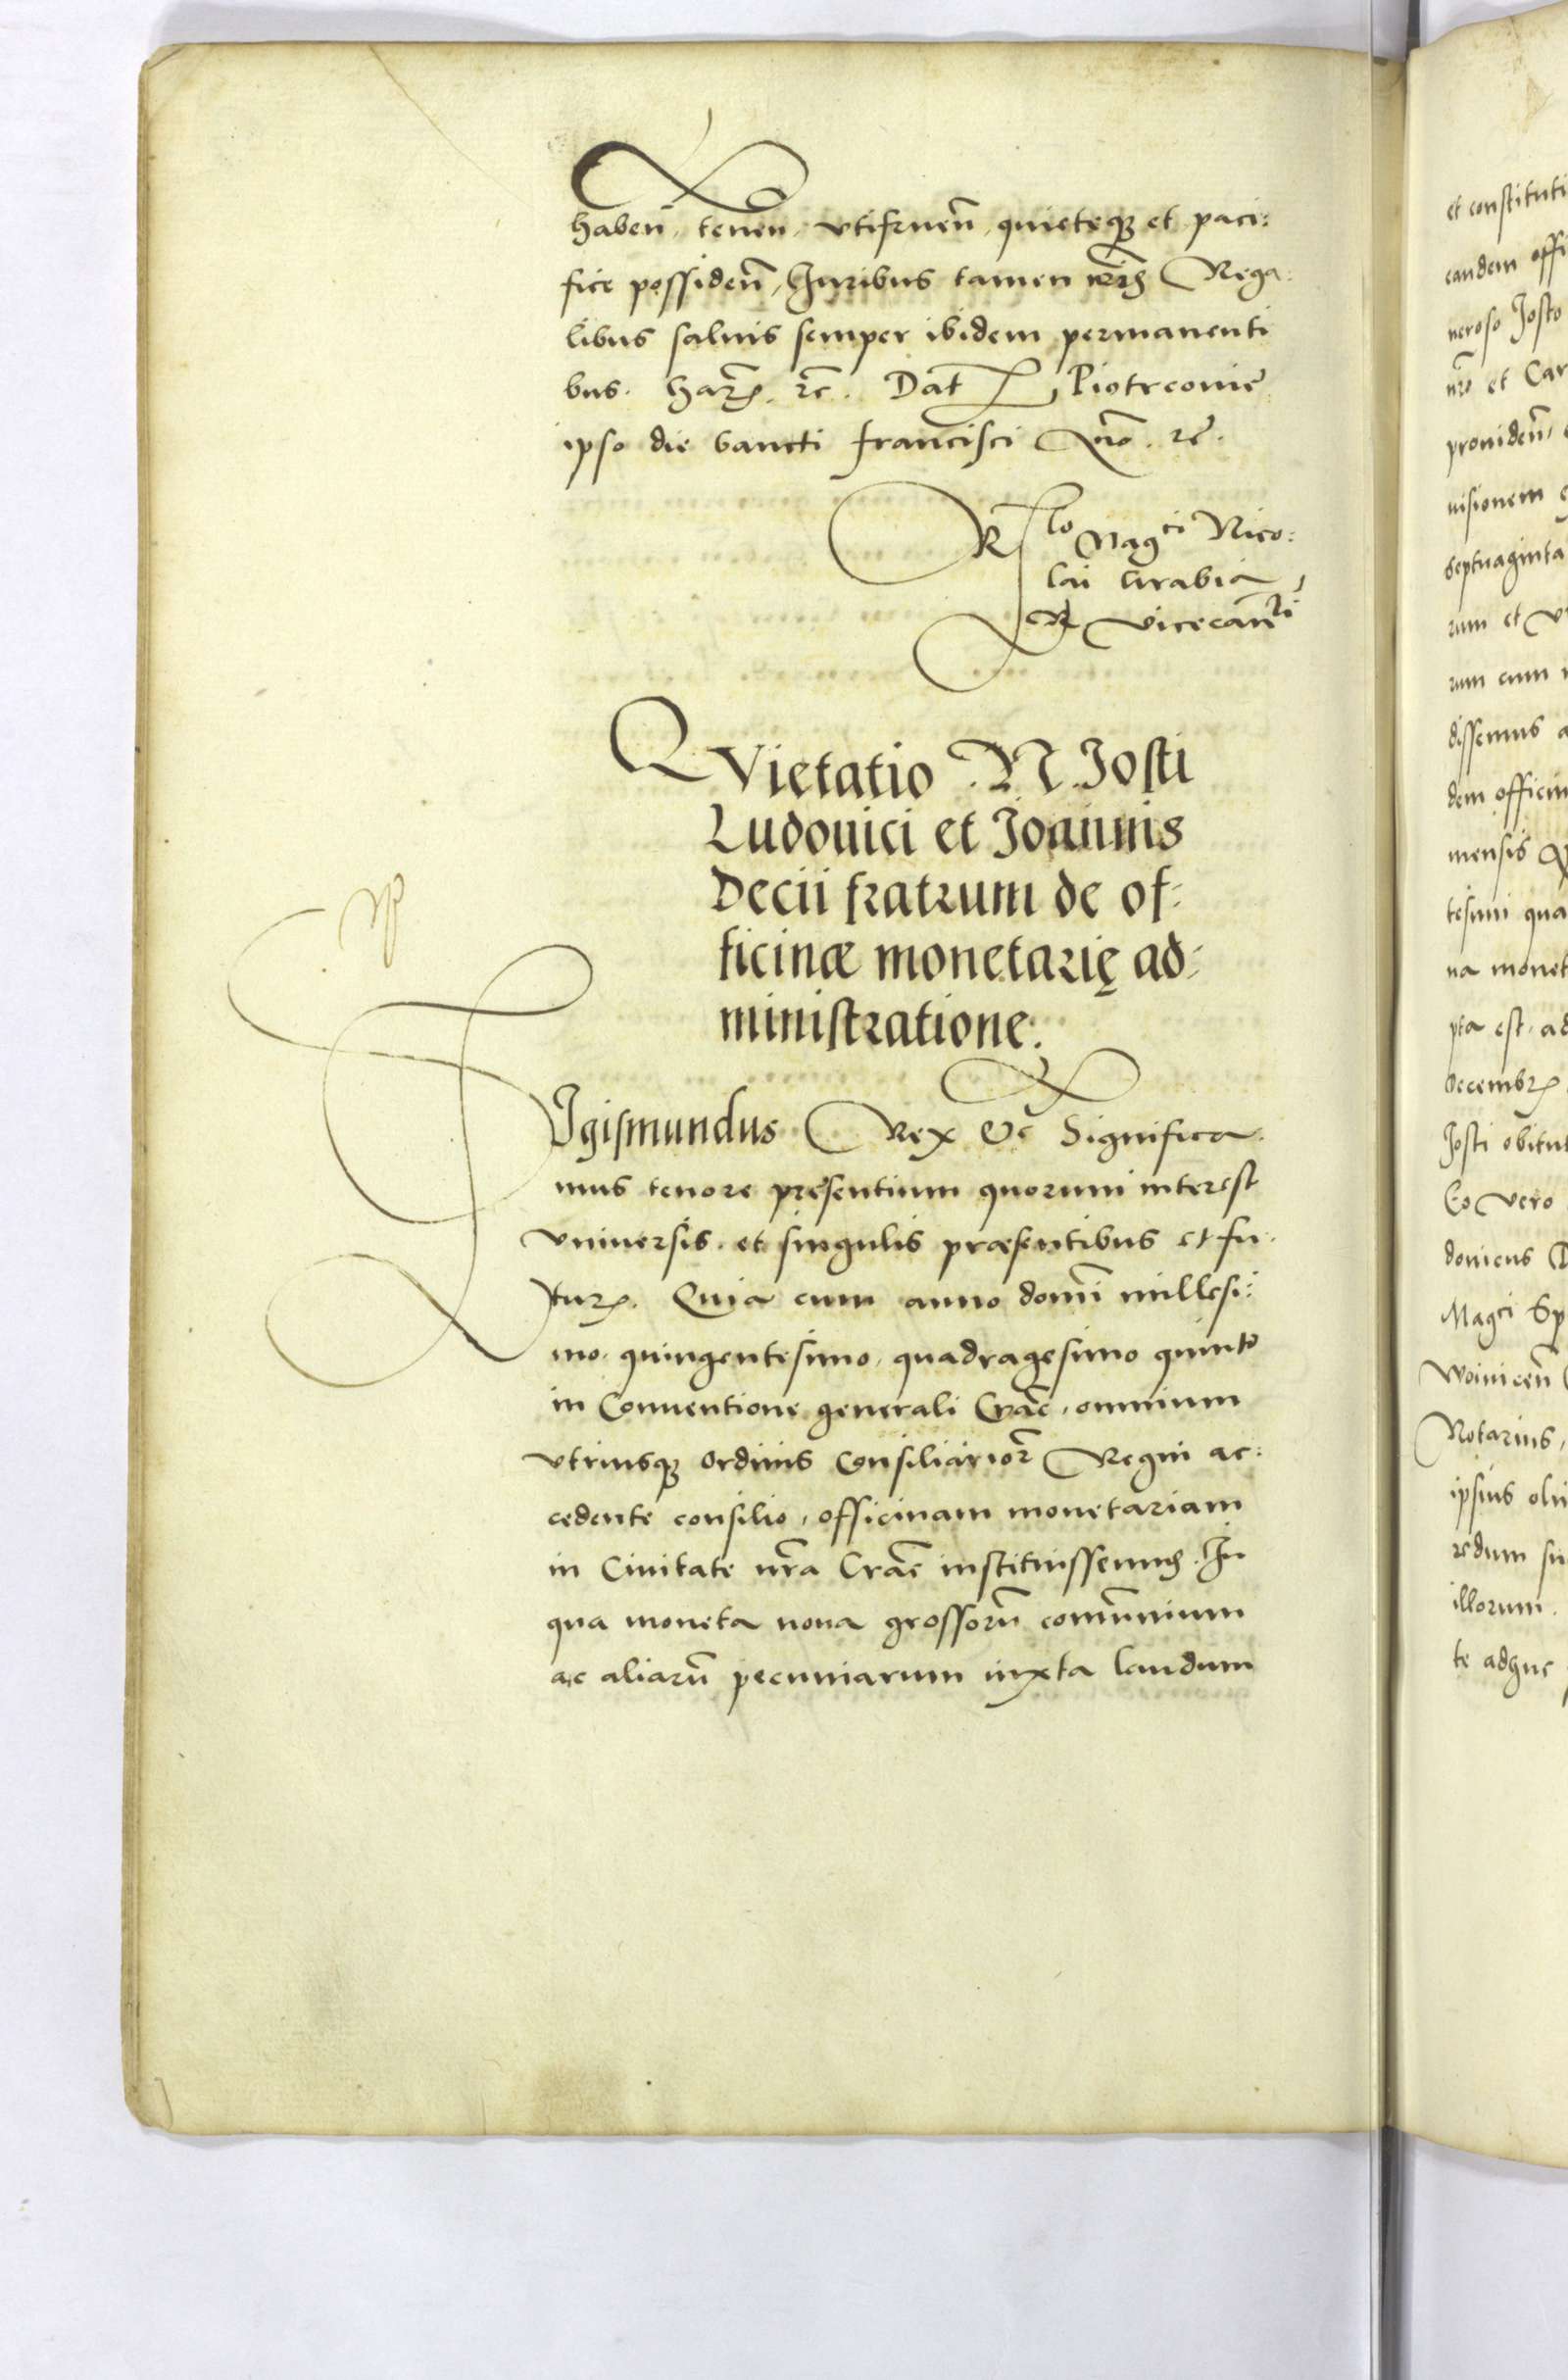 haben̄, tenen̄, vtifruen̄, quieteqꝫ et paci:
fice possiden̄, Iuribus tamen nr̄is Rega:
libus saluis semper ibidem permanenti
bus. Harꝝ. ꝛc̄. Dat̄ Piotrcouie
ipso die Sancti Francisci Anō. ꝛc̄.
Rlo Magci Nico:
lai Grabia
R Vicecan̄rii
QVietatio N. Josti
Ludouici et Joannis
Decii fratrum de of:
ficinæ monetarię ad:
ministratione.
SIgismundus Rex &c̄ Significa
mus tenore presentium quorum interest
vniuersis. et singulis præsentibus et fu:
turꝝ. Quia cum anno domī millesi:
mo. quingentesimo, quadragesimo quinto
in Conuentione generali Crac̄, omnium
vtriusqꝫ ordinis Consiliarior̄ Regni ac:
cedente consilio, officinam monetariam
in Ciuitate nr̄a Crac̄ instituissemus. In
qua moneta noua grossorū com̄unium
ac aliarū pecuniarum iuxta laudum
et constituti
eandem offi
neroso Josto
nr̄o et Car
prouiden̄
uisionem
septuaginta
rum et v
rum cum
dissemus a
dem officin
mensis
tesimi qua
na monet
pta est, ad
Decembrꝝ
Josti obitu
Eo vero
douicus D
Magci Sp
Woinicen̄
Notarius,
ipsius oli
redum su
illorum.
te adhuc